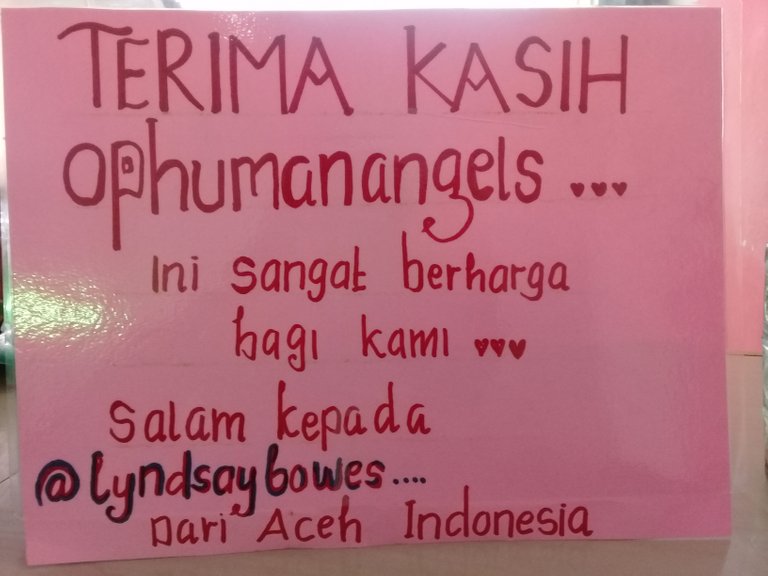 TERIMA KASIH
ophumanangels ...
Ini sangat berharga
bagi kami ♥♥♥
Salam kepada
@lyndsaybowes....
Dari Aceh Indonesia